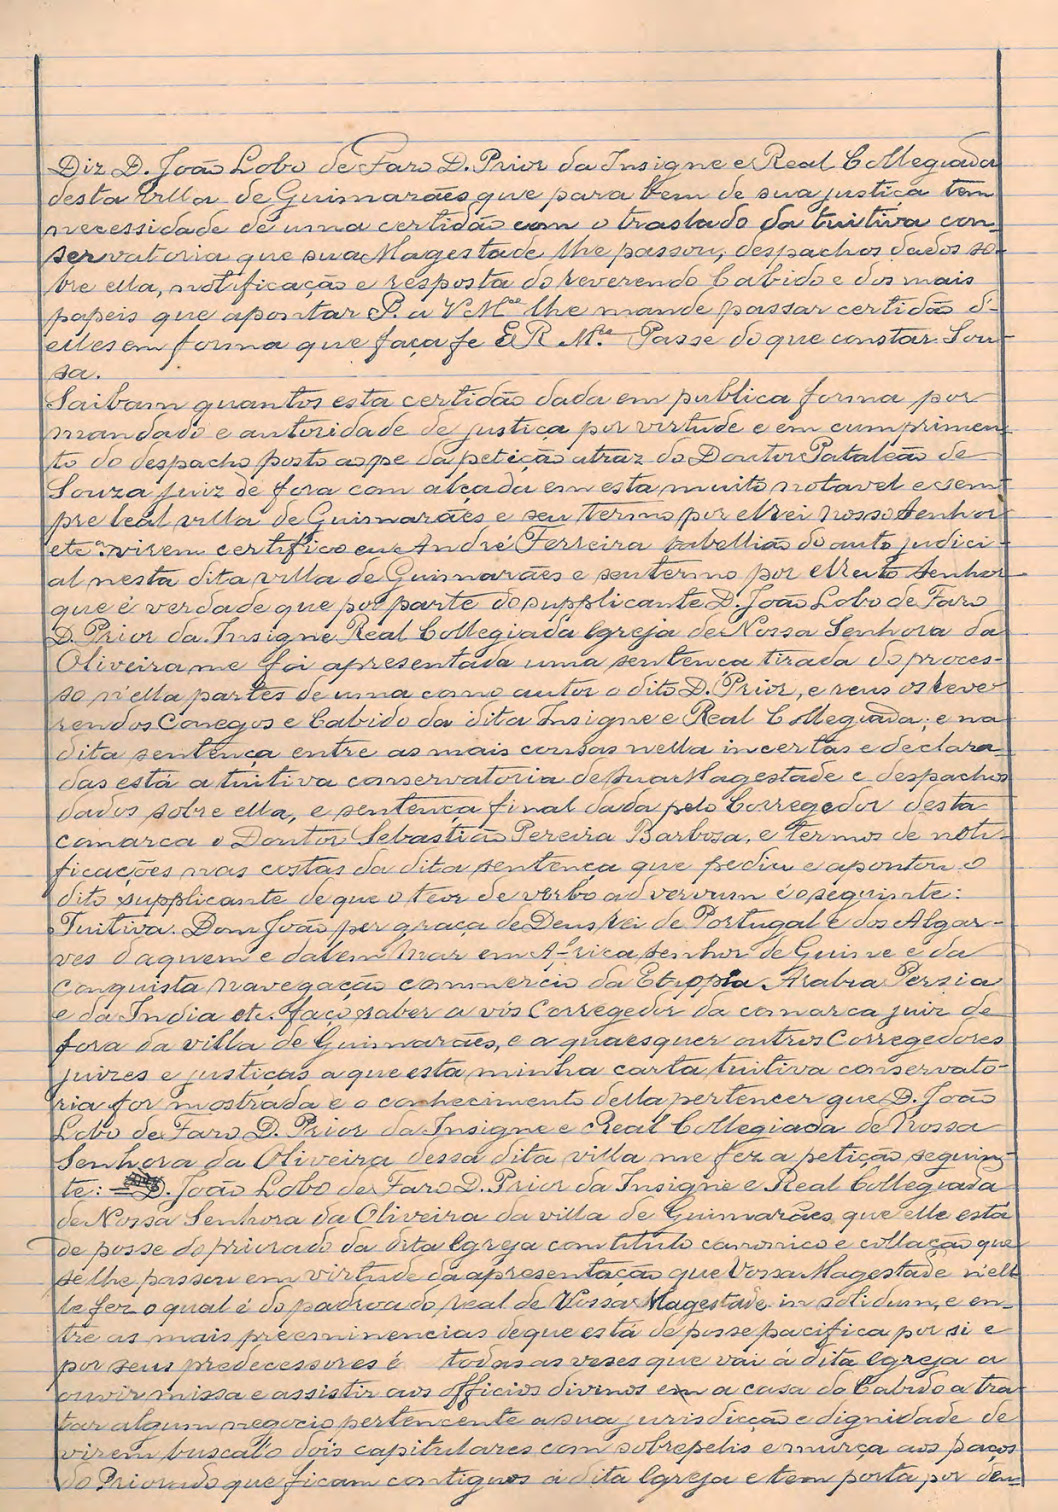 Diz D. João Lobo de Faro D. Prior da Insigne e Real Collegiada
desta villa de Guimarães que para bem de sua justiça tem
necessidade de uma certidão com o traslado da tuitiva con-
servatoria que sua Magestade lhe passou, despachos dados so-
bre ella, notificação e resposta do reverendo Cabido e dos mais
papeis que apontar P. a V Mce lhe mande passar certidão d'-
elles em forma que faça fe E R Mce Passe do que constar. Sou-
sa.
Saibam quantos esta certidão dada em publica forma por
mandado e autoridade de justiça por virtude e em cumprimen-
to do despacho posto ao pe da petição atraz do Doutor Pataleão de
Souza juiz de fora com alçada em esta muito notavel e sem-
pre leal villa de Guimarães e seu termo por elrei nosso Senhor
etc.ª virem certifico eu André Ferreira tabellião do auto judici-
al nesta dita villa de Guimarães e seu termo por elrei o Senhor
que é verdade que por parte do supplicante D. João Lobo de Faro
D. Prior da Insigne Real Collegiada Igreja de Nossa Senhora da
Oliveira me foi apresentada uma sentença tirada do proces-
so n'ella partes de uma como autor o dito D. Prior, e reus os reve-
rendos Conegos e Cabido da dita Insigne e Real Collegiada; e na
dita sentença entre as mais cousas nella incertas e declara-
das está a tuitiva conservatoria de sua Magestade e despachos
dados sobre ella, e sentença final dada pelo Corregedor desta
comarca o Doutor Sebastião Pereira Barbosa, e termos de noti-
ficações nas costas da dita sentença que pediu e apontou o
dito supplicante de que o teor de verbo ad vervum é o seguinte:
Tuitiva. Dom João por graça de Deus rei de Portugal e dos Algar-
ves d'aquem e dalem Mar em Africa senhor de Guine e da
Conquista navegação commercio da Etiopia Arabia Persia
e da India etc. faço saber a vós Corregedor da comarca juiz de
fora da villa de Guimarães, e a quaesquer outros Corregedores
juizes e justiças a que esta minha carta tuitiva conservato-
ria for mostrada e o conhecimento della pertencer que D. João
Lobo de Faro D. Prior da Insigne e Real Collegiada de Nossa
Senhora da Oliveira dessa dita villa me fez a petição seguin-
te: = D. João Lobo de Faro D. Prior da Insigne e Real Collegiada
de Nossa Senhora da Oliveira da villa de Guimarães, que elle está
de posse do priorado da dita Igreja com titulo canonico e collação que
se lhe passou em virtude da apresentação que Vossa Magestade n'elle
fez o qual é do padroado real de Vossa Magestade in solidum, e en-
tre as mais preeminencias de que está de posse pacifica por si e
por seus predecessores é todas as veses que vai á dita Igreja a
ouvir missa e assistir aos officios divinos em a casa do Cabido a tra-
tar algum negocio pertencente a sua jurisdicção e dignidade de
virem buscal'o dois capitulares com sobrepelis e murça aos paços
do Priorado que ficam contiguos á dita Igreja e tem porta por den-